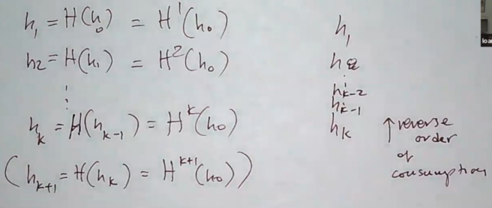 h₁ = H(h₀) = H¹(h₀)
h₂ = H(h₁) = H²(h₀)
⋮
hₖ = H(hₖ₋₁) = Hᵏ(h₀)
(hₖ₊₁ = H(hₖ) = Hᵏ⁺¹(h₀))
h₁
h₂
⋮
hₖ₋₂
hₖ₋₁
hₖ
↑ reverse
order
of
consumption